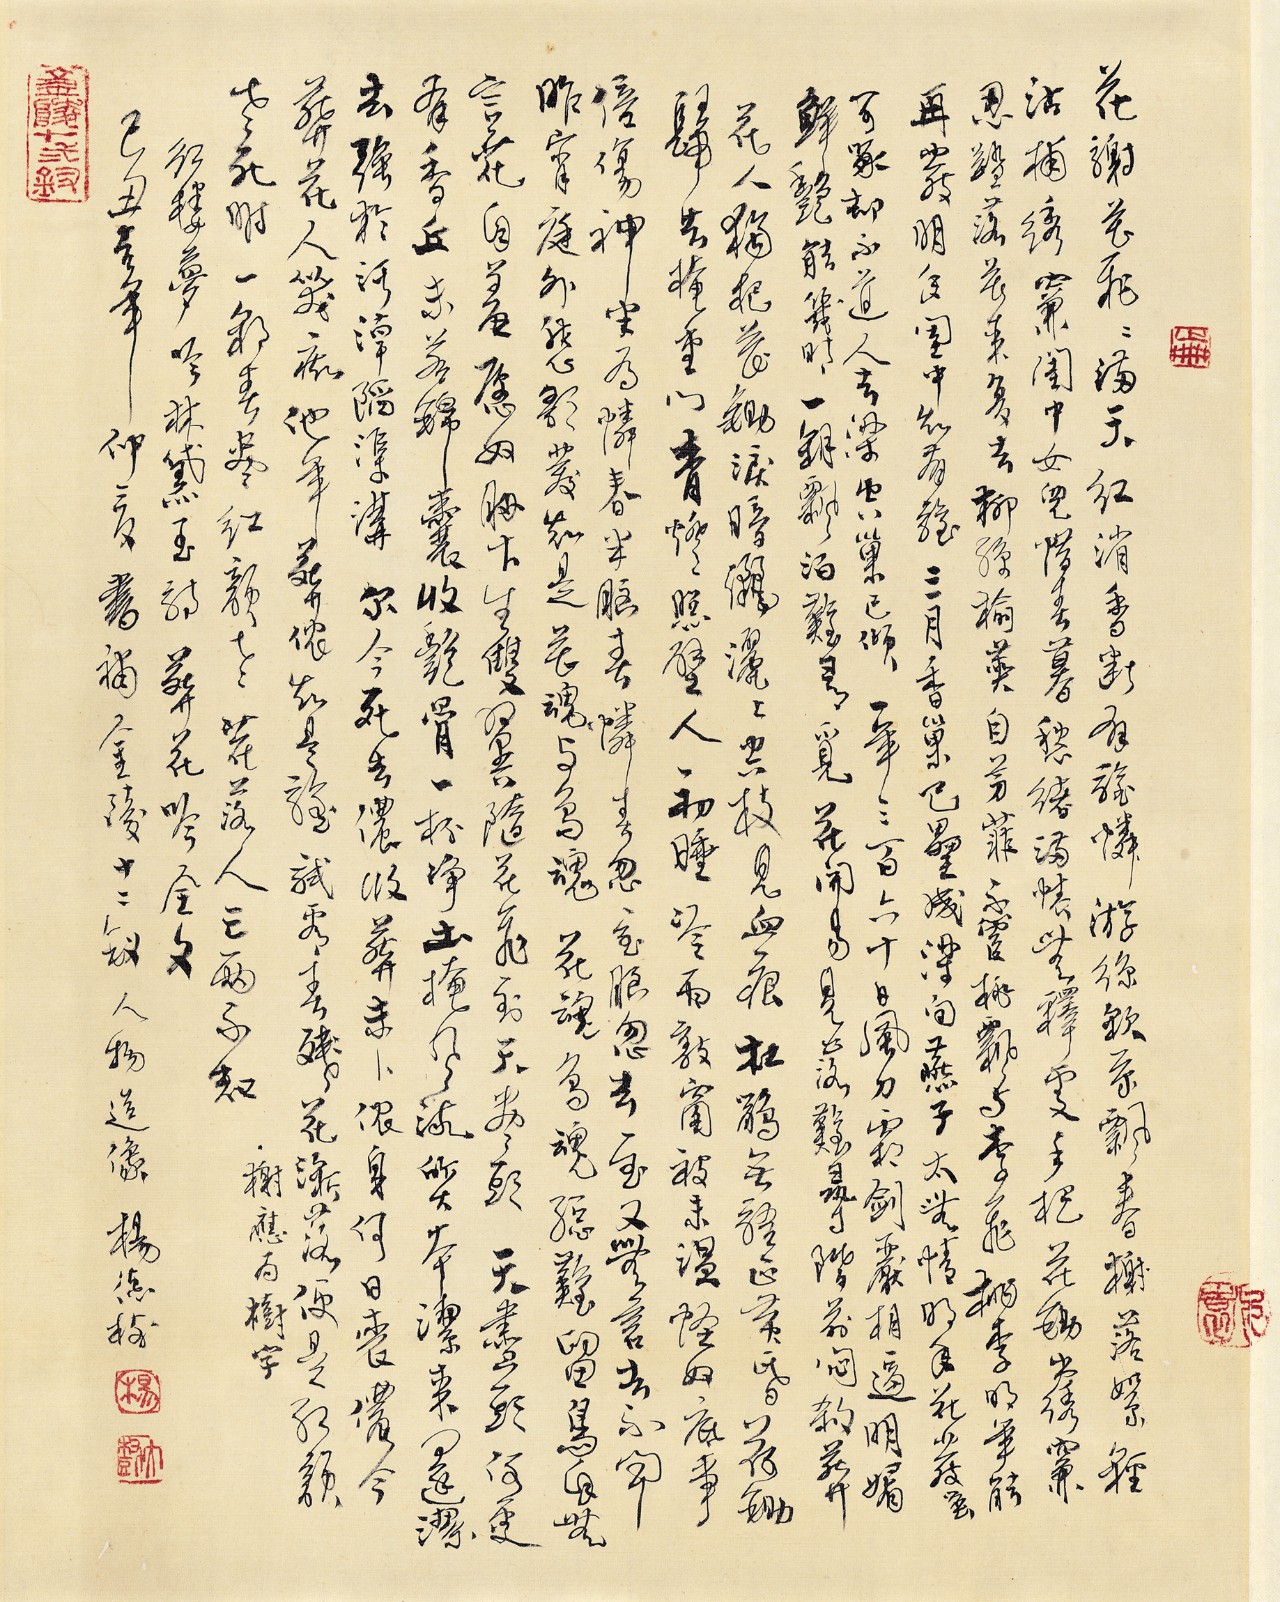 花謝花飛飛滿天紅消香斷有誰憐游絲軟系飄春榭落絮輕
沾撲綉簾閨中女兒惜春暮愁緒滿懷無釋處手把花鋤出綉簾
忍踏落花來復去柳絲榆莢自芳菲不管桃飄與李飛桃李明年能
再發明年閨中知有誰三月香巢已壘成梁間燕子太無情明年花發雖
可啄却不道人去梁空巢已傾一年三百六十日風刀霜劍嚴相逼明媚
鮮艷能幾時一朝飄泊難尋覓花開易見落難尋階前悶殺葬
花人獨把花鋤淚暗灑灑上空枝見血痕杜鵑無語正黃昏荷鋤
歸去掩重門青燈照壁人初睡冷雨敲窗被未溫怪奴底事
倍傷神半為憐春半惱春憐春忽至惱忽去至又無言去不聞
昨宵庭外悲歌發知是花魂與鳥魂花魂鳥魂總難留鳥自無
言花自羞願奴脇下生雙翼隨花飛到天盡頭天盡頭何處
有香丘未若錦囊收艷骨一抔淨土掩風流質本潔來還潔
去強於污淖陷渠溝爾今死去儂收葬未卜儂身何日喪儂今
葬花人笑痴他年葬儂知是誰試看春殘花漸落便是紅顏
老死時一朝春盡紅顏老花落人亡兩不知
榭應為樹字
紅樓夢吟林黛玉詩葬花吟全文
己丑吉年仲夏書補金陵十二釵人物造像楊德
金陵十二釵
楊